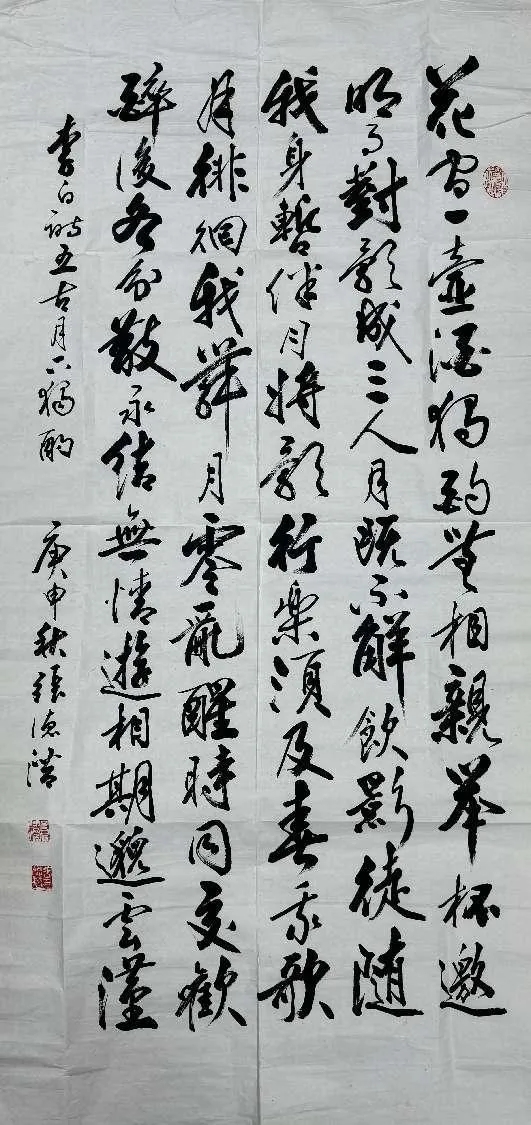 花間一壺酒獨酌無相親舉杯邀
明月對影成三人月既不解飲影徒隨
我身暫伴月將影行樂須及春我歌
月徘徊我舞月零亂醒時同交歡
醉後各分散永結無情遊相期邈雲漢
李白詩五古月下獨酌
庚申秋張